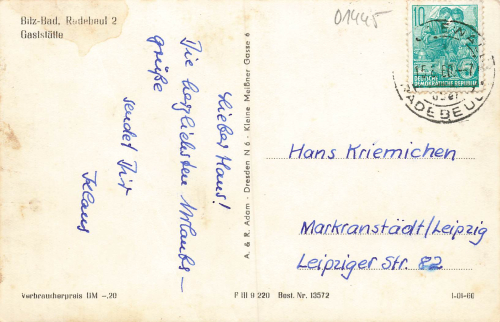 Bilz-Bad, Radebeul 2
Gaststätte
01445
10
DEUTSCHE
DEMOKRATISCHE REPUBLIK
RADEBEUL
Lieber Hans!
Die herzlichsten Urlaubs-
grüße
sendet Dir
Klaus
A. & R. Adam - Dresden N 6 - Kleine Meißner Gasse 6
Hans Kriemichen
Markranstädt/Leipzig
Leipziger Str. 82
Verbraucherpreis DM -.20
P III 9 220 Best. Nr. 13572
1-01-60